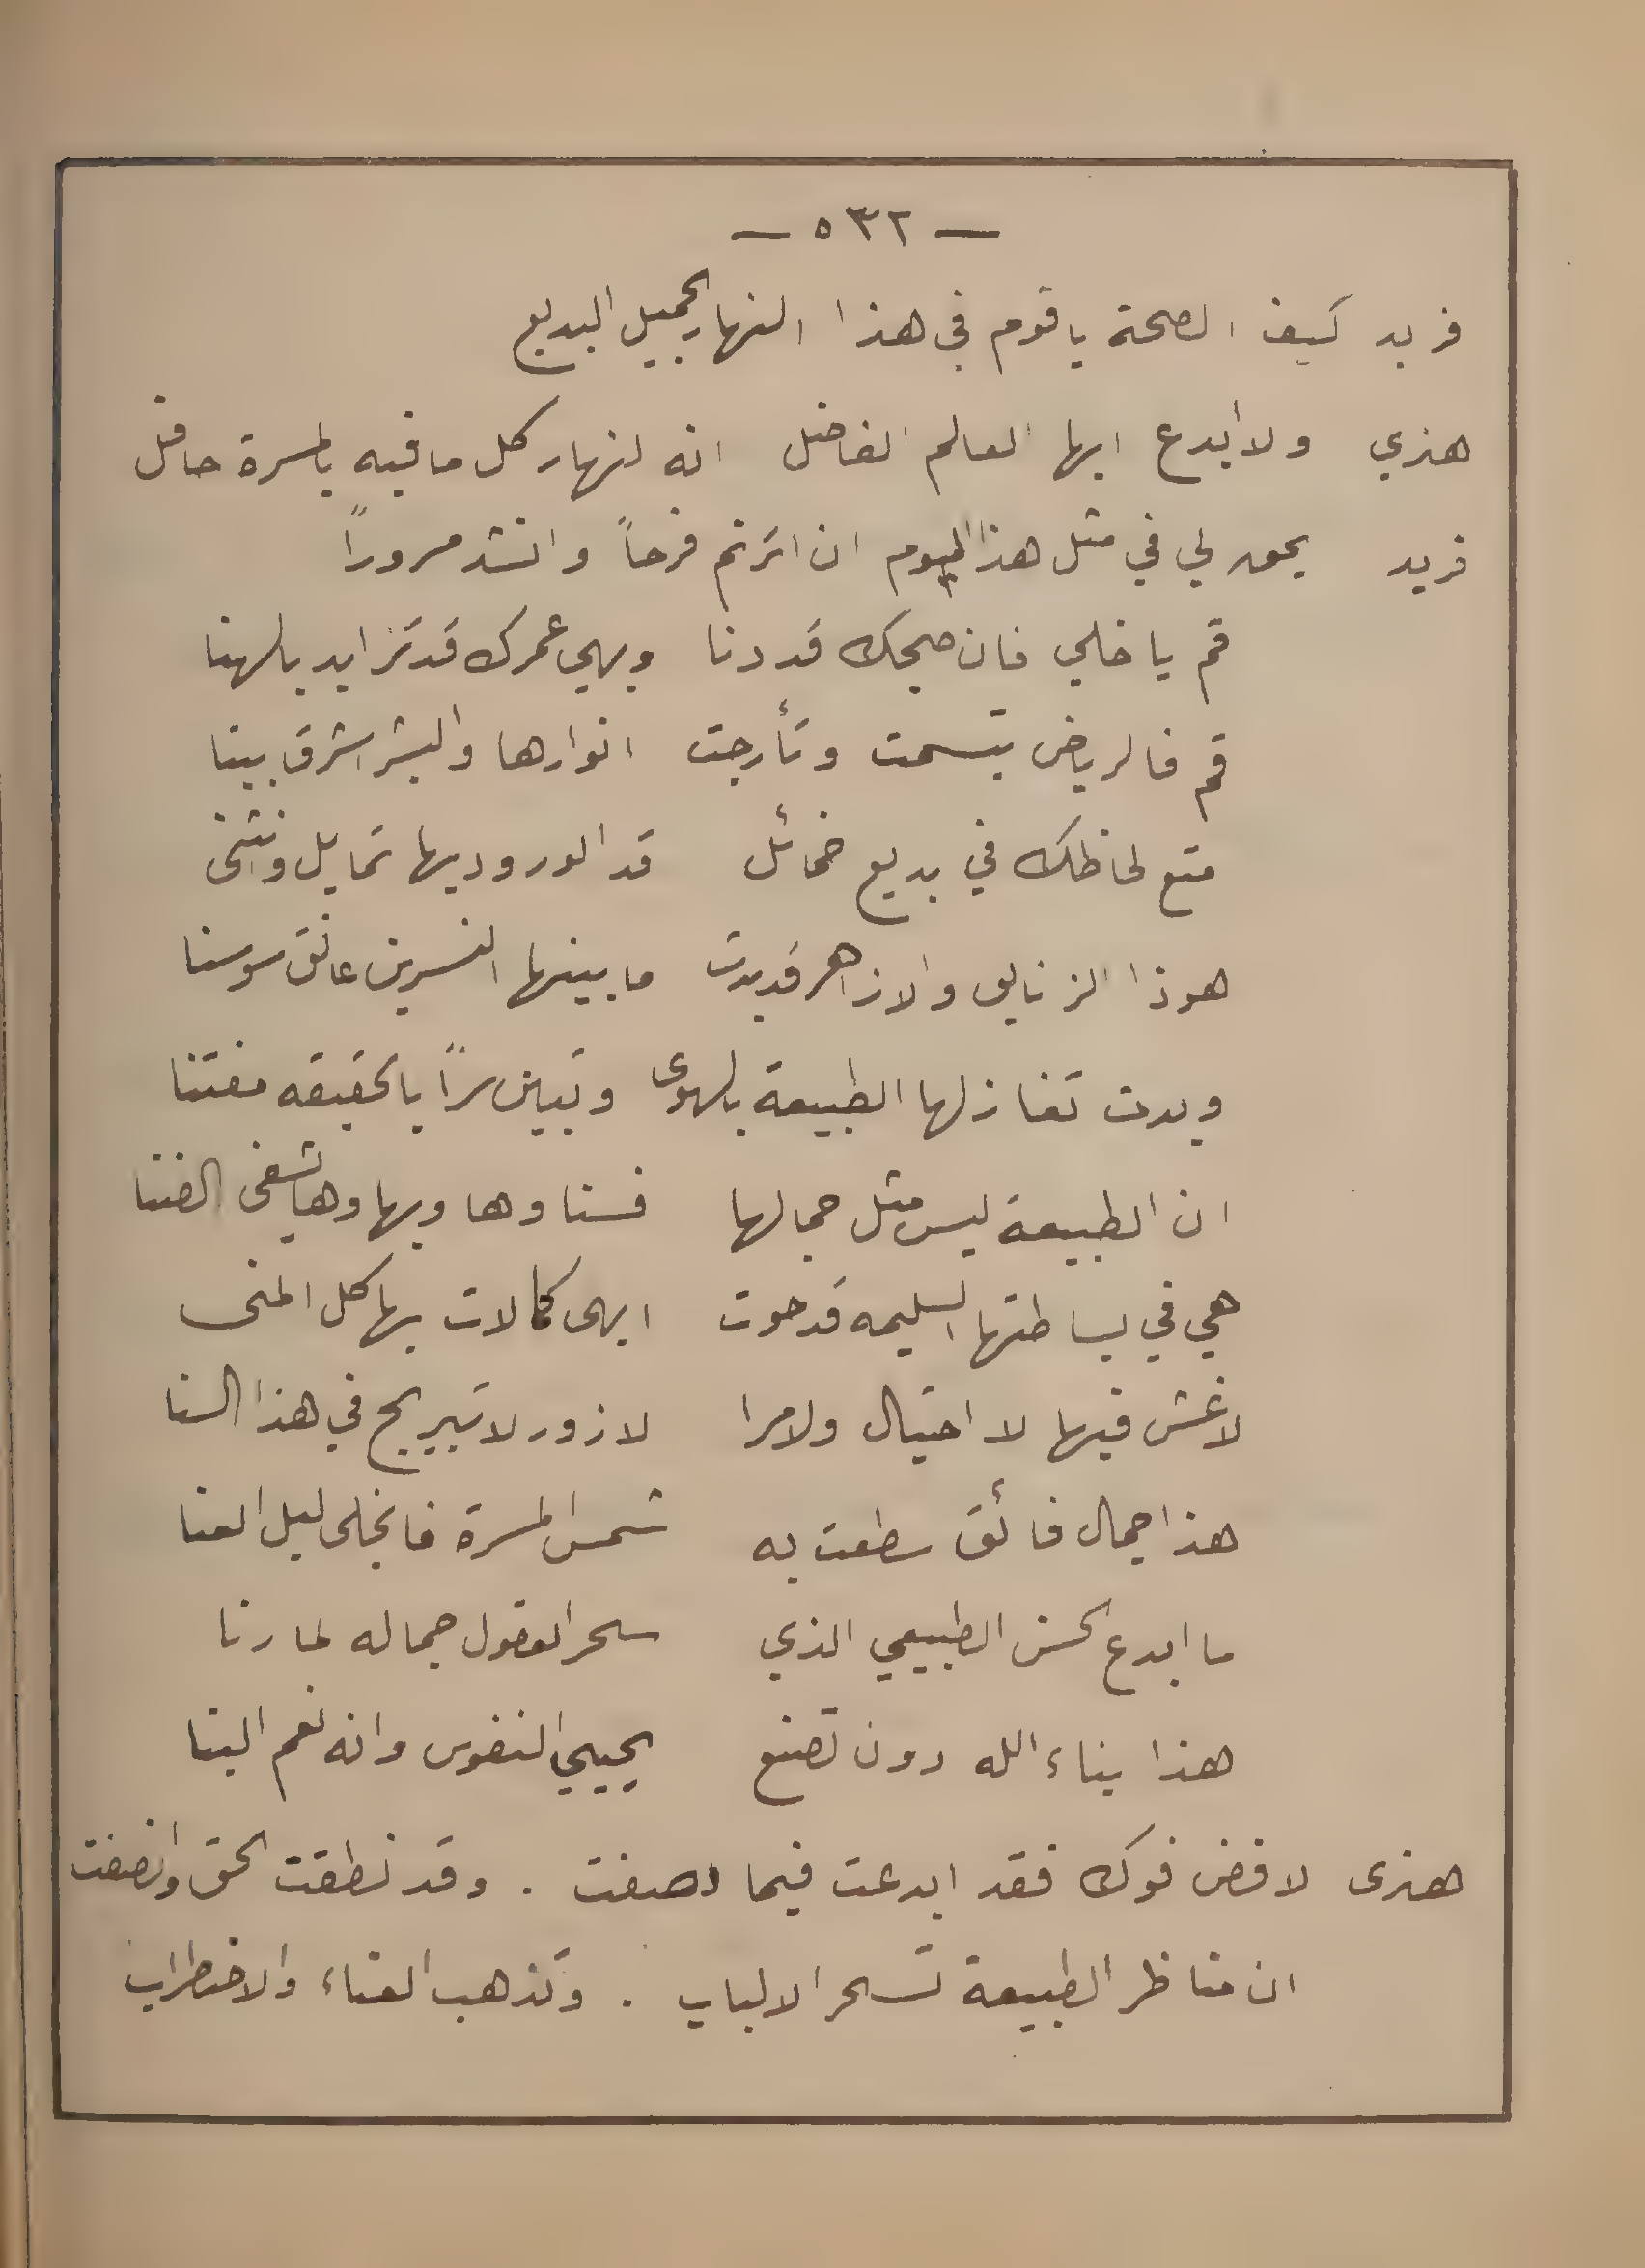 — ٥٣٢ —
فريد كيف الصحة يا قوم في هذا النهار الجميل البديع
هنري ولا ابدع ايها العالم الفاضل انه لنهار كل ما فيه بالمسرة حافل
فريد يحق لي في مثل هذا اليوم ان اترنم فرحاً وانشد مسروراً
قم يا خلي فان صبحك قد دنا وبهي عمرك قد تزايد بالهنا
قم فالرياض تبسمت وتأرجت انوارها والبشر اشرق بيننا
متع لحاظك في بديع خمائل قد الورود بها تمايل وانثنى
هوذا الزنابق والازاهر قد بدت ما بينها النسرين عانق سوسنا
وبدت تغازلها الطبيعة بالهوى وتبين سراً بالحقيقه مفتنا
ان الطبيعة ليس مثل جمالها فسناوها وبهاوها تشفى الضنا
هي في بساطتها السليمه قد حوت ابهى كمالات بها كل المنى
لا غش فيها لا احتيال ولا مرا لا زور لا تبريج في هذا السنا
هذا جمال فائق سطعت به شمس المسرة فانجلى ليل العنا
ما ابدع الحسن الطبيعي الذي سحر العقول جماله لما رنا
هذا بناء الله دون تصنع يحيي النفوس وانه نعم البنا
هنرى لا فض فوك فقد ابدعت فيما وصفت . وقد نطقت الحق وانصفت
ان مناظر الطبيعة تسحر الالباب . وتذهب العناء والاضطراب